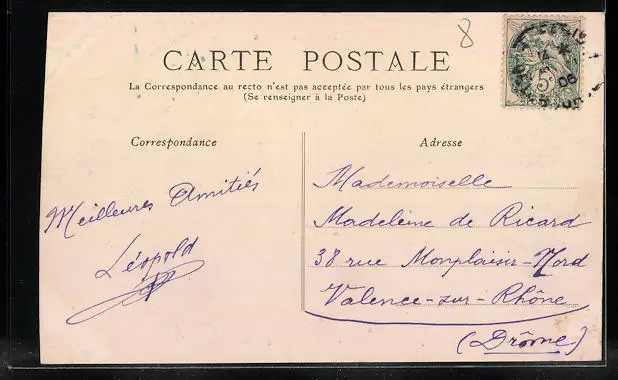 8
CARTE POSTALE
La Correspondance au recto n'est pas acceptée par tous les pays étrangers
(Se renseigner à la Poste)
Correspondance
Adresse
Meilleures Amitiés
Léopold
Mademoiselle
Madeleine de Ricard
38 rue Monplaisir-Nord
Valence-sur-Rhône
(Drôme)
5c
06